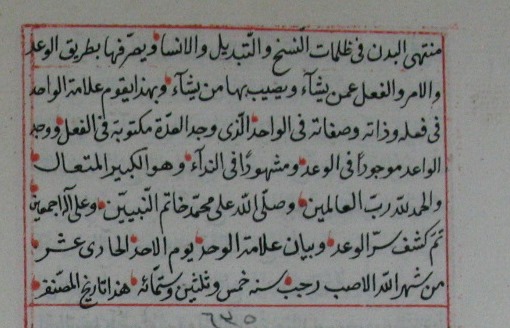 منتهى البدن فى ظلمات النسخ والتّبديل والانسا ويصرّفها بطريق الوعد
والامر والفعل عمن يشآء ويصيب بها من يشآء وبهذا يقوم علامة الواحد
فى فعله وذاته وصفاته فى الواحد الّذى وجد العدّة مكتوبة فى الفعل ووجد
الواعد موجودًا فى الوعد ومشهودًا فى الندآء وهو الكبير المتعال
والحمد لله ربّ العالمين وصلّى الله على محمّد خاتم النّبيين وعلى آله اجمعين
تمّ كشف سرّ الوعد وبيان علامة الوجد يوم الاحد الحادى عشر
من شهر الله الاصب رجب سنه خمس وثلثين وستّمائه هذا تاريخ المصنّف
٦٣٥